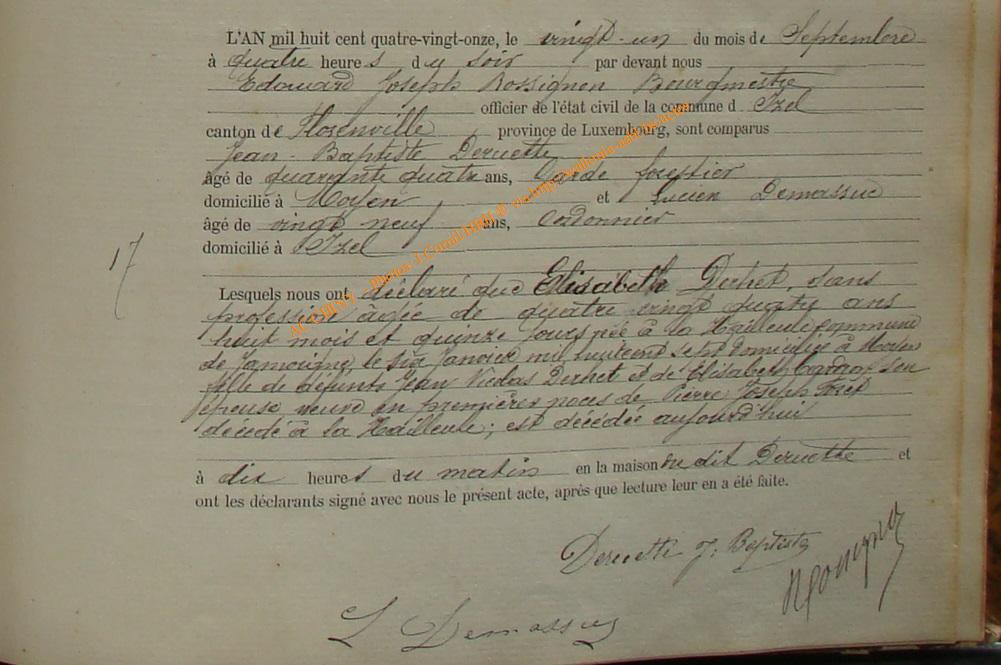 L'AN mil huit cent quatre-vingt-onze, le vingt-un du mois de Septembre
à quatre heures du soir par devant nous
Edouard Joseph Rossignon Bourgmestre
officier de l'état civil de la commune d Izel
canton de Florenville, province de Luxembourg, sont comparus
Jean-Baptiste Deruette
âgé de quarante quatre ans, Garde forestier
domicilié à Moyen et Lucien Demassue
âgé de vingt neuf ans, Cordonnier
domicilié à Izel
17
Lesquels nous ont déclaré que Elisabeth Derhet, sans
profession agée de quatre vingt quatre ans
huit mois et quinze jours née à la Hailleule commune
de Jamoigne, le six Janvier mil huit cent sept domiciliée à Moyen
fille de défunts Jean Nicolas Derhet et de Elisabeth son
épouse, veuve en premières noces de Pierre Joseph
décédé à la Hailleule; est décédée aujourd'hui
à dix heures du matin en la maison du dit Deruette et
ont les déclarants signé avec nous le présent acte, après que lecture leur en a été faite.
Deruette J. Baptiste
L Demassue